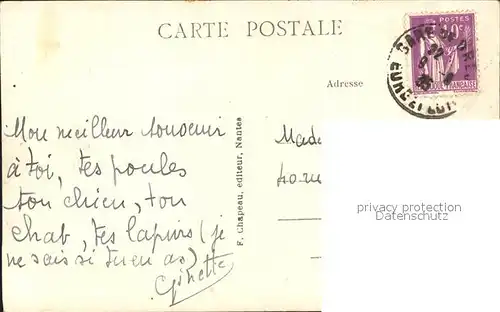 CARTE POSTALE
POSTES
Adresse
Mon meilleur souvenir
à toi, tes poules
ton chien, ton
chat, tes lapins (je
ne sais si tu en as)
Ginette
F. Chapeau, editeur, Nantes
Made
privacy protection
Datenschutz